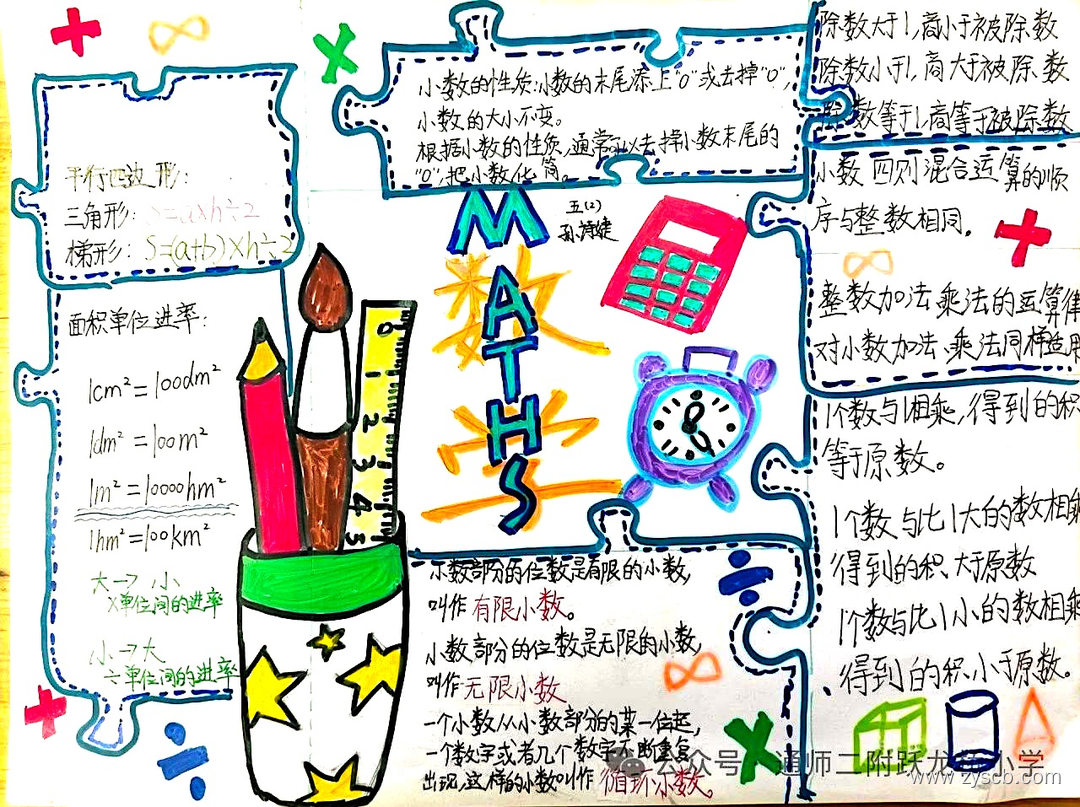 平行四边形：
三角形：S=a×h÷2
梯形：S=(a+b)×h÷2
面积单位进率：
1cm²=100dm²
1dm²=100m²
1m²=10000hm²
1hm²=100km²
大→小
×单位间的进率
小→大
÷单位间的进率
小数的性质:小数的末尾添上"0"或去掉"0",
小数的大小不变。
根据小数的性质,通常可以去掉小数末尾的
"0",把小数化简。
五(2)
MATHS
数学
0 1 2 3 4 5
小数部分的位数是有限的小数,
叫作有限小数。
小数部分的位数是无限的小数,
叫作无限小数
一个小数从小数部分的某一位起,
一个数字或者几个数字不断重复
出现,这样的小数叫作循环小数。
除数大于1,商小于被除数
除数小于1,商大于被除数
除数等于1,商等于被除数
小数四则混合运算的顺
序与整数相同。
整数加法乘法的运算律
对小数加法、乘法同样适用
1个数与1相乘,得到的积
等于原数。
1个数与比1大的数相乘
得到的积大于原数
1个数与比1小的数相乘
得到的积小于原数。
www.zyscb.com